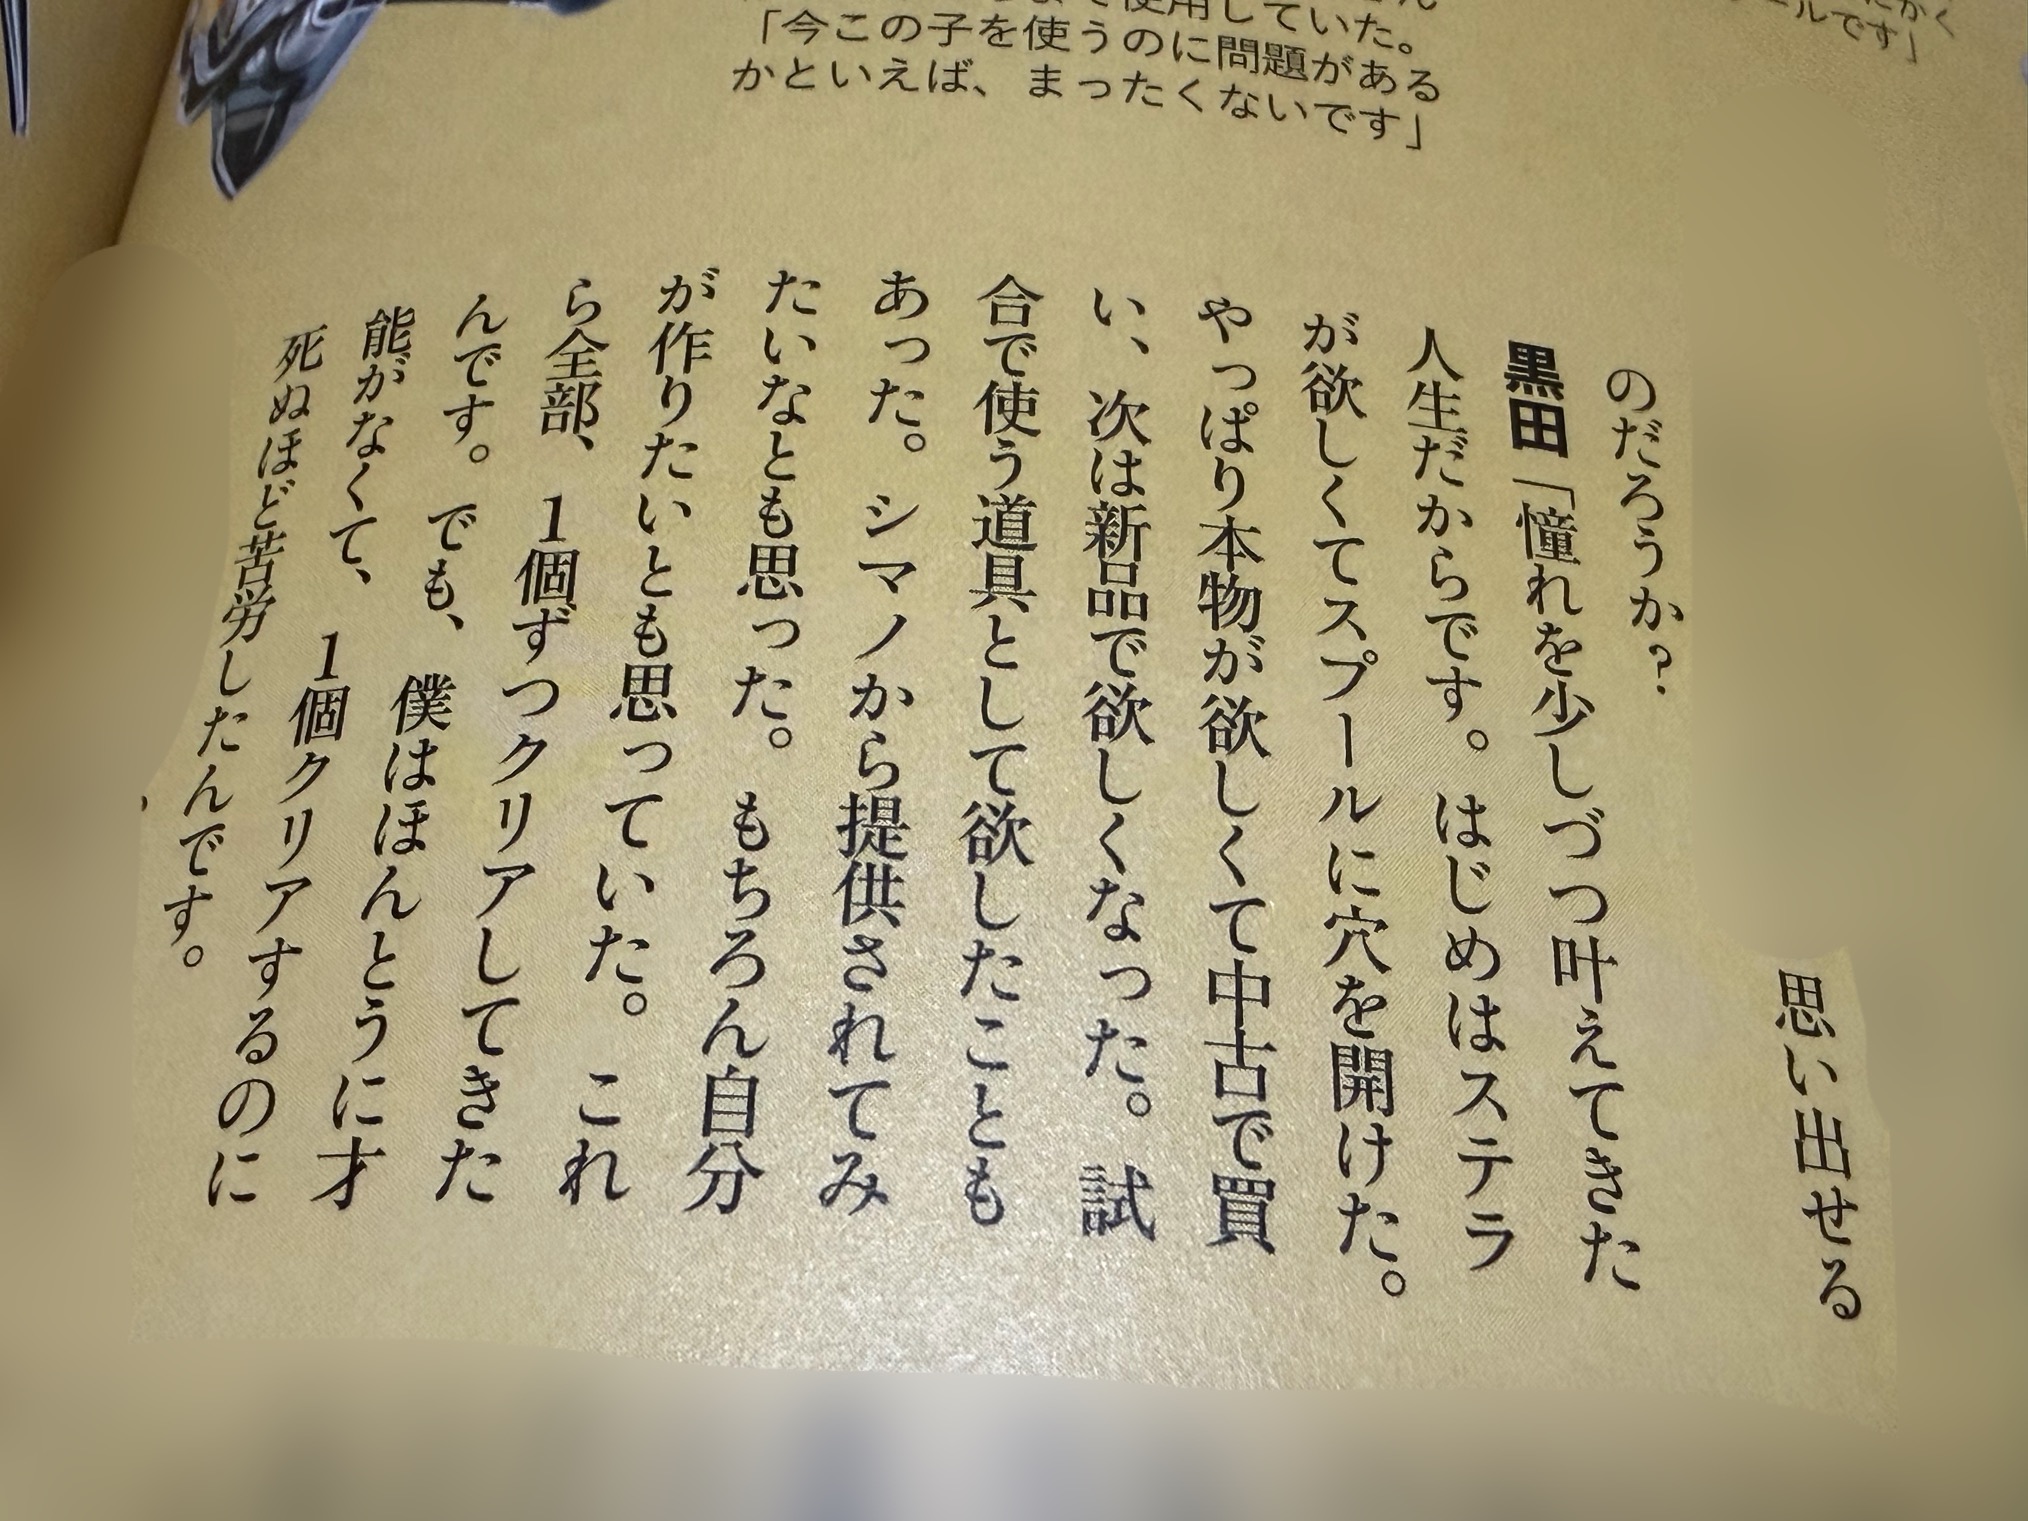 使用していた。
「今この子を使うのに問題がある
かといえば、まったくないです」
ールです」
思い出せる
のだろうか?
黒田「憧れを少しづつ叶えてきた
人生だからです。はじめはステラ
が欲しくてスプールに穴を開けた。
やっぱり本物が欲しくて中古で買
い、次は新品で欲しくなった。試
合で使う道具として欲したことも
あった。シマノから提供されてみ
たいなとも思った。もちろん自分
が作りたいとも思っていた。これ
ら全部、1個ずつクリアしてきた
んです。でも、僕はほんとうに才
能がなくて、1個クリアするのに
死ぬほど苦労したんです。